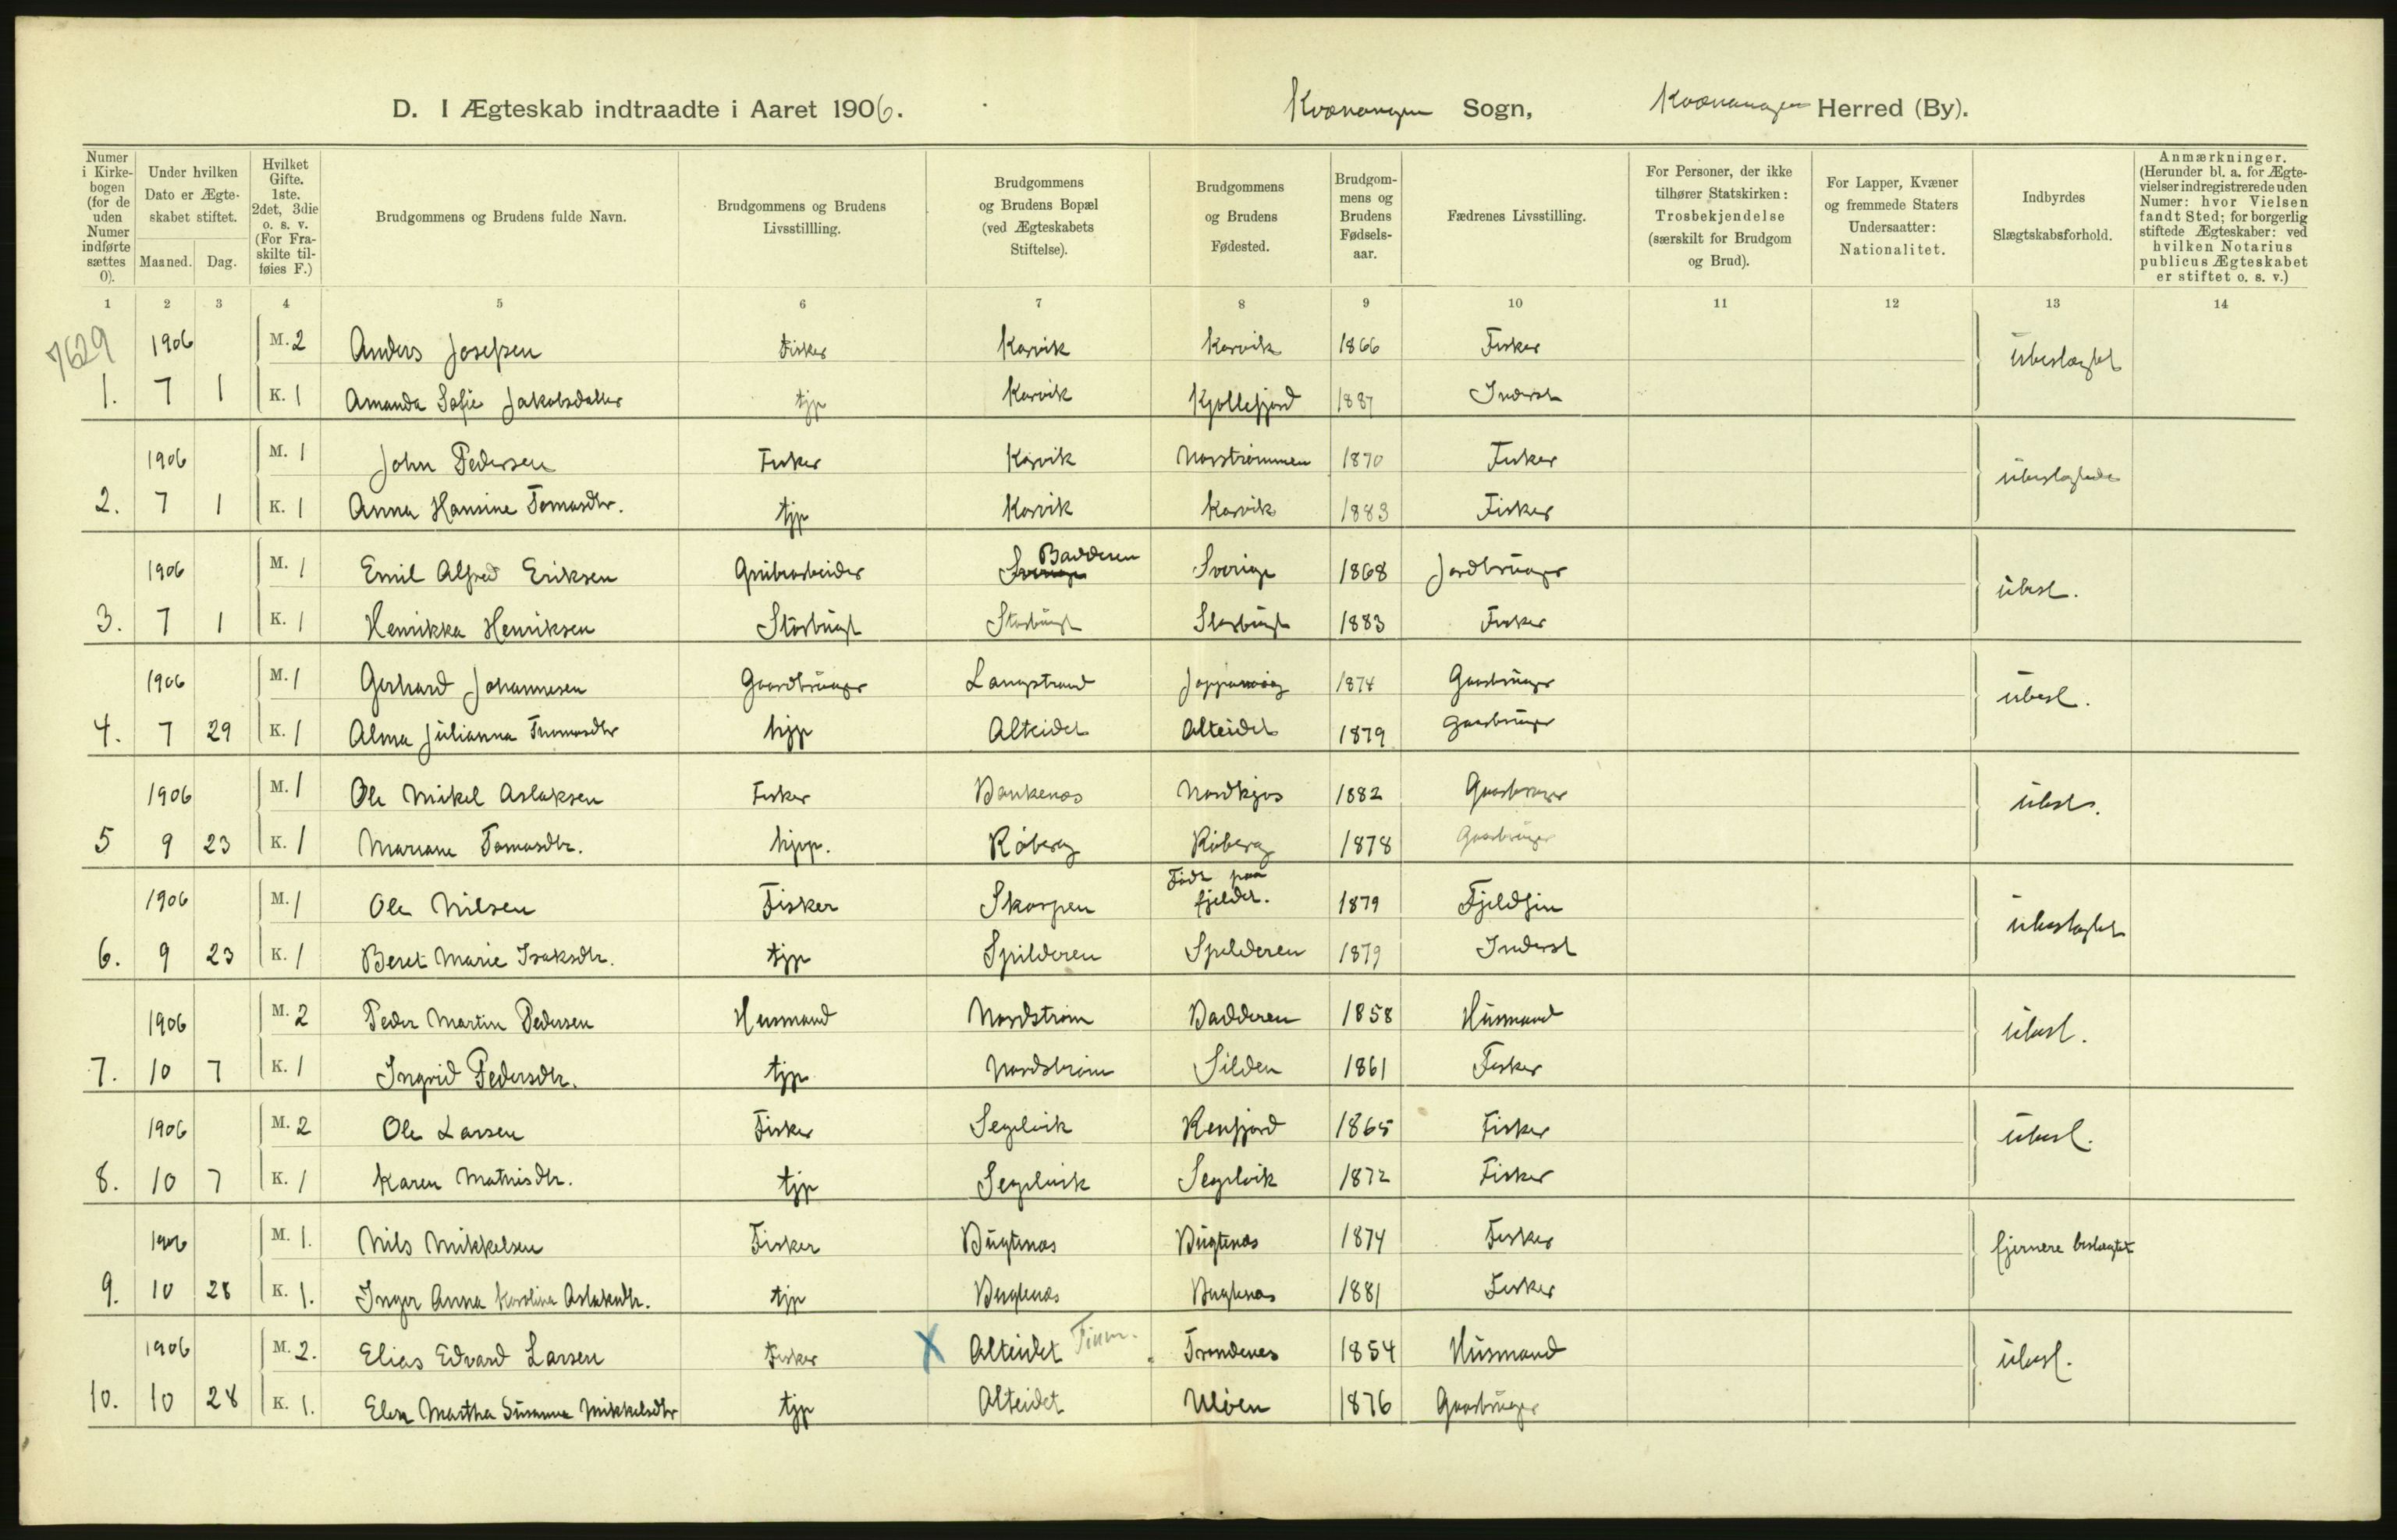 D. I Ægteskab indtraadte i Aaret 1906. Kvænangen Sogn, Kvænangen Herred (By).
Numer i Kirkebogen (for de uden Numer indførte sættes 0). Under hvilken Dato er Ægteskabet stiftet. Maaned. Dag. Hvilket Gifte. 1ste. 2det, 3die o. s. v. (For Fraskilte tilføies F.) Brudgommens og Brudens fulde Navn. Brudgommens og Brudens Livsstillling. Brudgommens og Brudens Bopæl (ved Ægteskabets Stiftelse). Brudgommens og Brudens Fødested. Brudgommens og Brudens Fødsels-aar. Fædrenes Livsstilling. For Personer, der ikke tilhører Statskirken: Trosbekjendelse (særskilt for Brudgom og Brud). For Lapper, Kvæner og fremmede Staters Undersaatter: Nationalitet. Indbyrdes Slægtskabsforhold. Anmærkninger. (Herunder bl. a. for Ægtevielser indregistrerede uden Numer: hvor Vielsen fandt Sted; for borgerlig stiftede Ægteskaber: ved hvilken Notarius publicus Ægteskabet er stiftet o. s. v.)
1 2 3 4 5 6 7 8 9 10 11 12 13 14
7629
1906 M. 2 Anders Josefsen Fisker Karvik Karvik 1866 Fisker ubeslægtet
1. 7 1 K. 1 Amanda Sofie Jakobsdatter tjp Karvik Kjøllefjord 1887 Inderst
1906 M. 1 John Pedersen Fisker Karvik Norstrømmen 1870 Fisker ubeslægtede
2. 7 1 K. 1 Anna Hansine Tomasdtr. tjp Karvik Karvik 1883 Fisker
1906 M. 1 Emil Alfred Eriksen Grubearbeider Sverige Badderen Sverige 1868 Jordbruger ubesl.
3. 7 1 K. 1 Henrikka Henriksen Storbugt Storbugt Storbugt 1883 Fisker
1906 M. 1 Gerhard Johannesen Gaardbruger Langstrand 1874 Gaarbruger ubesl.
4. 7 29 K. 1 Alma Julianna Tomasdtr hjp Alteidet Alteidet 1879 Gaarbruger
1906 M. 1 Ole Mikel Aslaksen Fisker Bankenæs Nordkjos 1882 Gaarbruger ubesl.
5 9 23 K. 1 Mariane Tomasdtr. hjp. Røberg Røberg 1878 Gaarbruger
1906 M. 1 Ole Nilsen Fisker Skorpen Født paa fjeldet. 1879 Fjeldfin ubeslægtet
6. 9 23 K. 1 Beret Marie Isaksdtr. tjp Spilderen Spilderen 1879 Inderst
1906 M. 2 Peder Martin Pedersen Husmand Nordstrøm Badderen 1858 Husmand ubesl.
7. 10 7 K. 1 Ingrid Pedersdtr. tjp Nordstrøm Silden 1861 Fisker
1906 M. 2 Ole Larsen Fisker Segelvik Renfjord 1865 Fisker ubesl.
8. 10 7 K. 1 Karen Mathisdtr. tjp Segelvik Segelvik 1872 Fisker
1906 M. 1. Nils Mikkelsen Fisker Bugtenæs Bugtenæs 1874 Fisker fjernere beslægtet
9. 10 28 K. 1. Inger Anna Karolina Aslaksdtr. tjp Bugtenæs Bugtenæs 1881 Fisker
1906 M. 2. Elias Edvard Larsen Fisker X Alteidet Finm. Trondenes 1854 Husmand ubesl.
10. 10 28 K. 1. Elen Martha Susanna Mikkelsdtr tjp Alteidet Uløen 1876 Gaarbruger